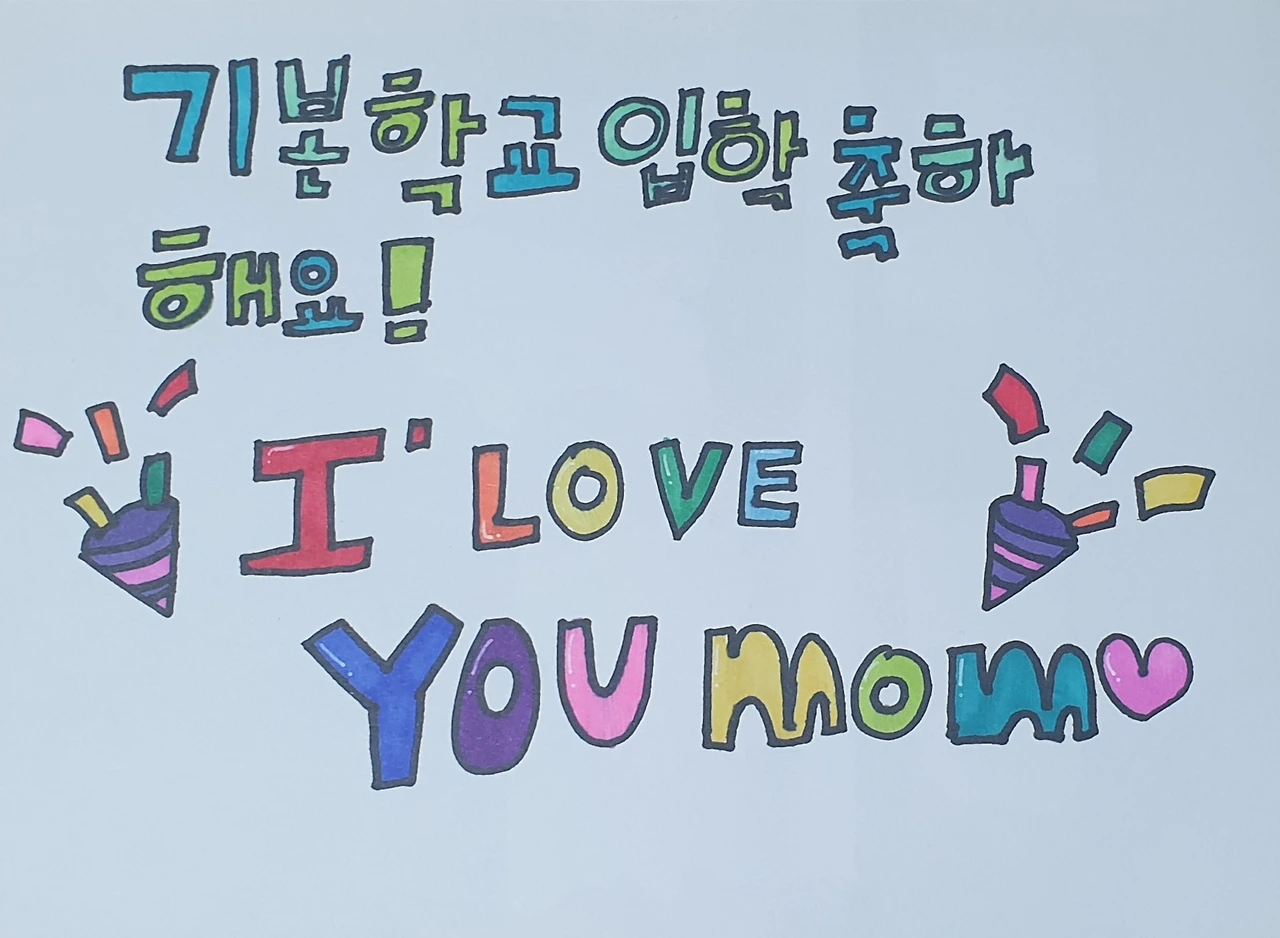 기본학교 입학 축하
해요!
I' LOVE
YOU mom♡